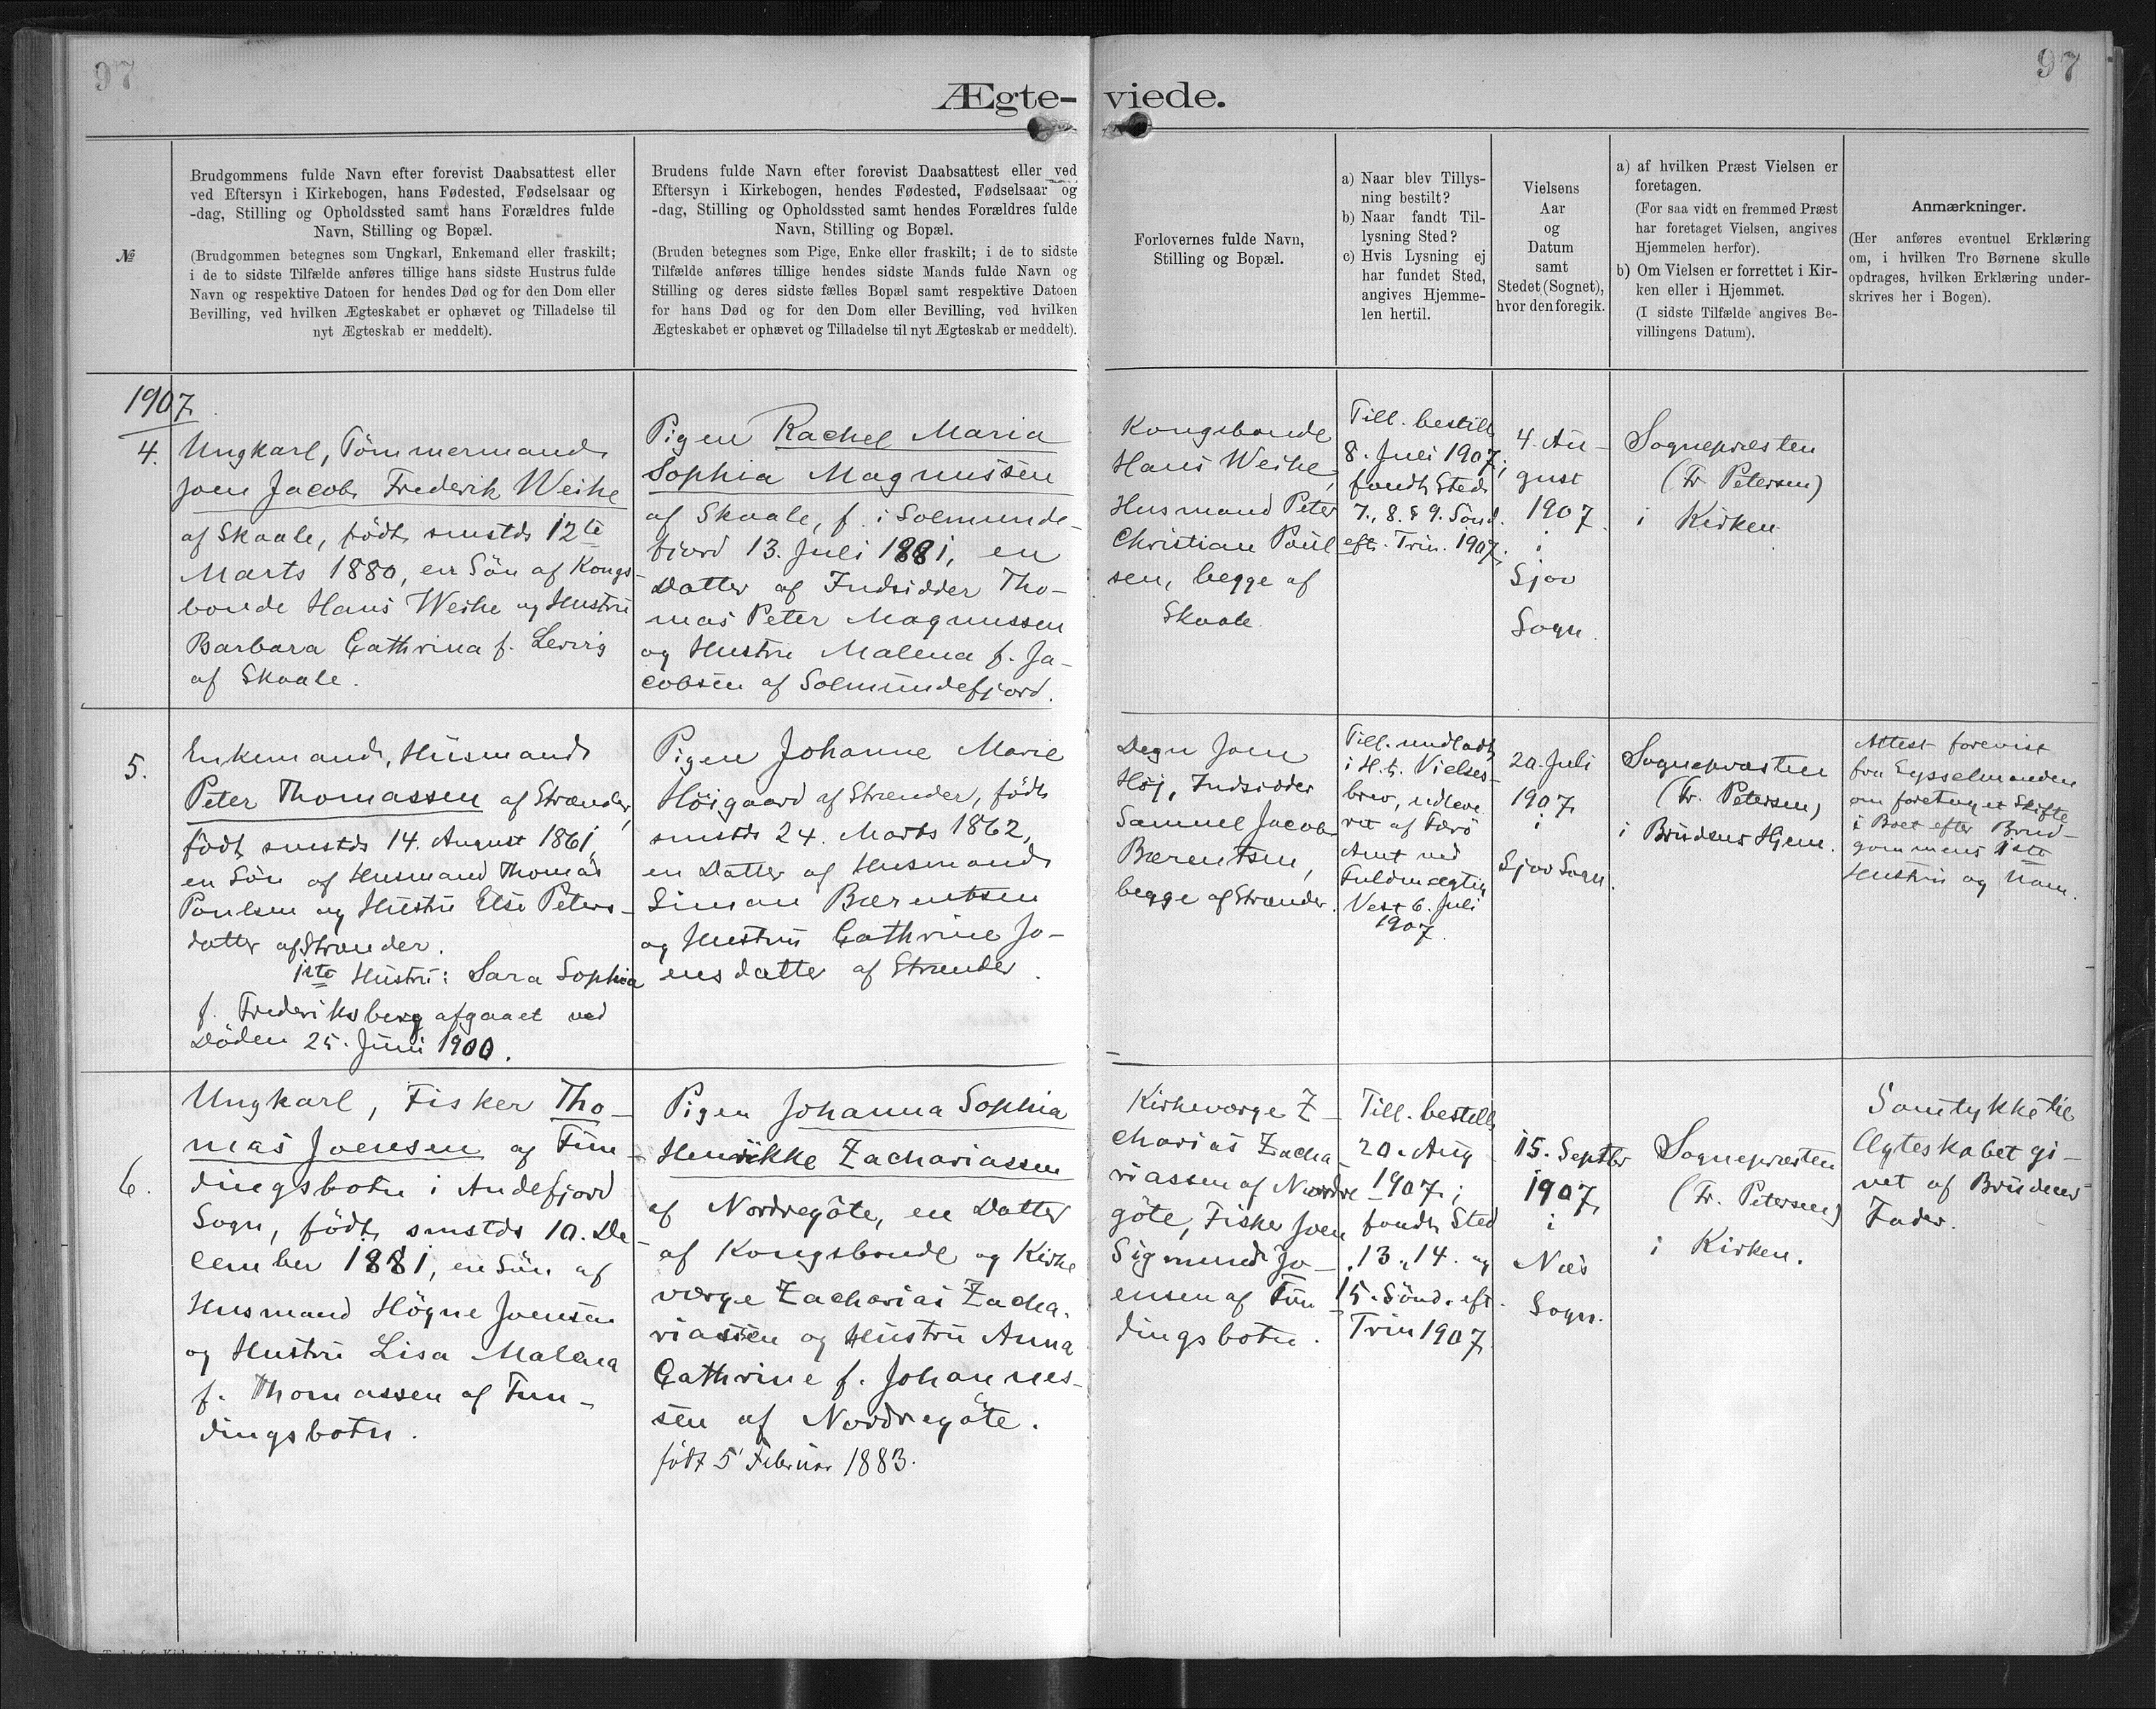 97
97
Ægte-
viede.
№
Brudgommens fulde Navn efter forevist Daabsattest eller
ved Eftersyn i Kirkebogen, hans Fødested, Fødselsaar og
-dag, Stilling og Opholdssted samt hans Forældres fulde
Navn, Stilling og Bopæl.
(Brudgommen betegnes som Ungkarl, Enkemand eller fraskilt;
i de to sidste Tilfælde anføres tillige hans sidste Hustrus fulde
Navn og respektive Datoen for hendes Død og for den Dom eller
Bevilling, ved hvilken Ægteskabet er ophævet og Tilladelse til
nyt Ægteskab er meddelt).
Brudens fulde Navn efter forevist Daabsattest eller ved
Eftersyn i Kirkebogen, hendes Fødested, Fødselsaar og
-dag, Stilling og Opholdssted samt hendes Forældres fulde
Navn, Stilling og Bopæl.
(Bruden betegnes som Pige, Enke eller fraskilt; i de to sidste
Tilfælde anføres tillige hendes sidste Mands fulde Navn og
Stilling og deres sidste fælles Bopæl samt respektive Datoen
for hans Død og for den Dom eller Bevilling, ved hvilken
Ægteskabet er ophævet og Tilladelse til nyt Ægteskab er meddelt).
Forlovernes fulde Navn,
Stilling og Bopæl.
a) Naar blev Tillys-
ning bestilt?
b) Naar fandt Til-
lysning Sted?
c) Hvis Lysning ej
har fundet Sted,
angives Hjemme-
len hertil.
Vielsens
Aar
og
Datum
samt
Stedet (Sognet),
hvor den foregik.
a) af hvilken Præst Vielsen er
foretagen.
(For saa vidt en fremmed Præst
har foretaget Vielsen, angives
Hjemmelen herfor).
b) Om Vielsen er forrettet i Kir-
ken eller i Hjemmet.
(I sidste Tilfælde angives Be-
villingens Datum).
Anmærkninger.
(Her anføres eventuel Erklæring
om, i hvilken Tro Børnene skulle
opdrages, hvilken Erklæring under-
skrives her i Bogen).
1907.
4.
Ungkarl, Tömmermand
Joen Jacob Frederik Weihe
af Skaale, født smstds 12te
Marts 1880, en Sön af Kongs-
bonde Hans Weihe og Hustru
Barbara Cathrina f. Levrig
af Skaale.
Pigen Rachel Maria
Sophia Magnussen
af Skaale, f. i Solmunde-
fjord 13. Juli 1881, en
Datter af Indsidder Tho-
mas Peter Magnussen
og Hustru Malena f. Ja-
cobsen af Solmundefjord.
Kongsbonde
Hans Weihe,
Husmand Peter
Christian Poul
sen, begge af
Skaale.
Till. bestilt
8. Juli 1907;
fandt Sted
7., 8. & 9. Sönd.
eft. Trin. 1907.
4. Au-
gust
1907
i
Sjov
Sogn.
Sognepræsten
(Fr. Petersen)
i Kirken.
5.
Enkemand, Husmand
Peter Thomassen af Strænder,
født smstds 14. August 1861,
en Sön af Husmand Thomas
Poulsen og Hustru Else Peters-
datter af Strænder.
1ste Hustru: Sara Sophia
f. Frederiksberg afgaaet ved
Döden 25. Juni 1900.
Pigen Johanne Marie
Höigaard af Strænder, født
smstds 24. Marts 1862,
en Datter af Husmand
Simon Bærentsen
og Hustru Cathrine Jo-
ensdatter af Strænder.
Degn Joen
Höj, Indsidder
Samuel Jacob
Bærentsen,
begge af Strænder.
Till. undladt
i H. t. Vielses-
brev, udleve
ret af Færö
Amt ved
Fuldmægtig
Vest 6. Juli
1907.
20. Juli
1907
i
Sjov Sogn.
Sognepræsten
(Fr. Petersen)
i Brudens Hjem.
Attest forevist
fra Sysselmanden
om foretaget Skifte
i Boet efter Brud-
gommens 1ste
Hustru og ham.
6.
Ungkarl, Fisker Tho-
mas Joensen af Fun-
dingsbotn i Andefjord
Sogn, født smstds 10. De
cember 1881, en Sön af
Husmand Högne Joensen
og Hustru Lisa Malena
f. Thomassen af Fun-
dingsbotn.
Pigen Johanna Sophia
Henrikke Zachariassen
af Nordregöte, en Datter
af Kongsbonde og Kirke
værge Zacharias Zacha-
riassen og Hustru Anna
Cathrine f. Johannes-
sen af Nordregöte.
født 5 Februar 1883.
Kirkeværge Z-
charias Zacha-
riassen af Nordre
göte, Fisker Joen
Sigmund Jo-
ensen af Fun
dingsbotn.
Till. bestilt
20. Aug
1907;
fandt Sted
13., 14. og
15. Sönd. eft.
Trin 1907.
15. Septbr
1907
i
Næs
Sogn.
Sognepræsten
(Fr. Petersen)
i Kirken.
Samtykke til
Ægteskabet gi-
vet af Brudens
Fader.